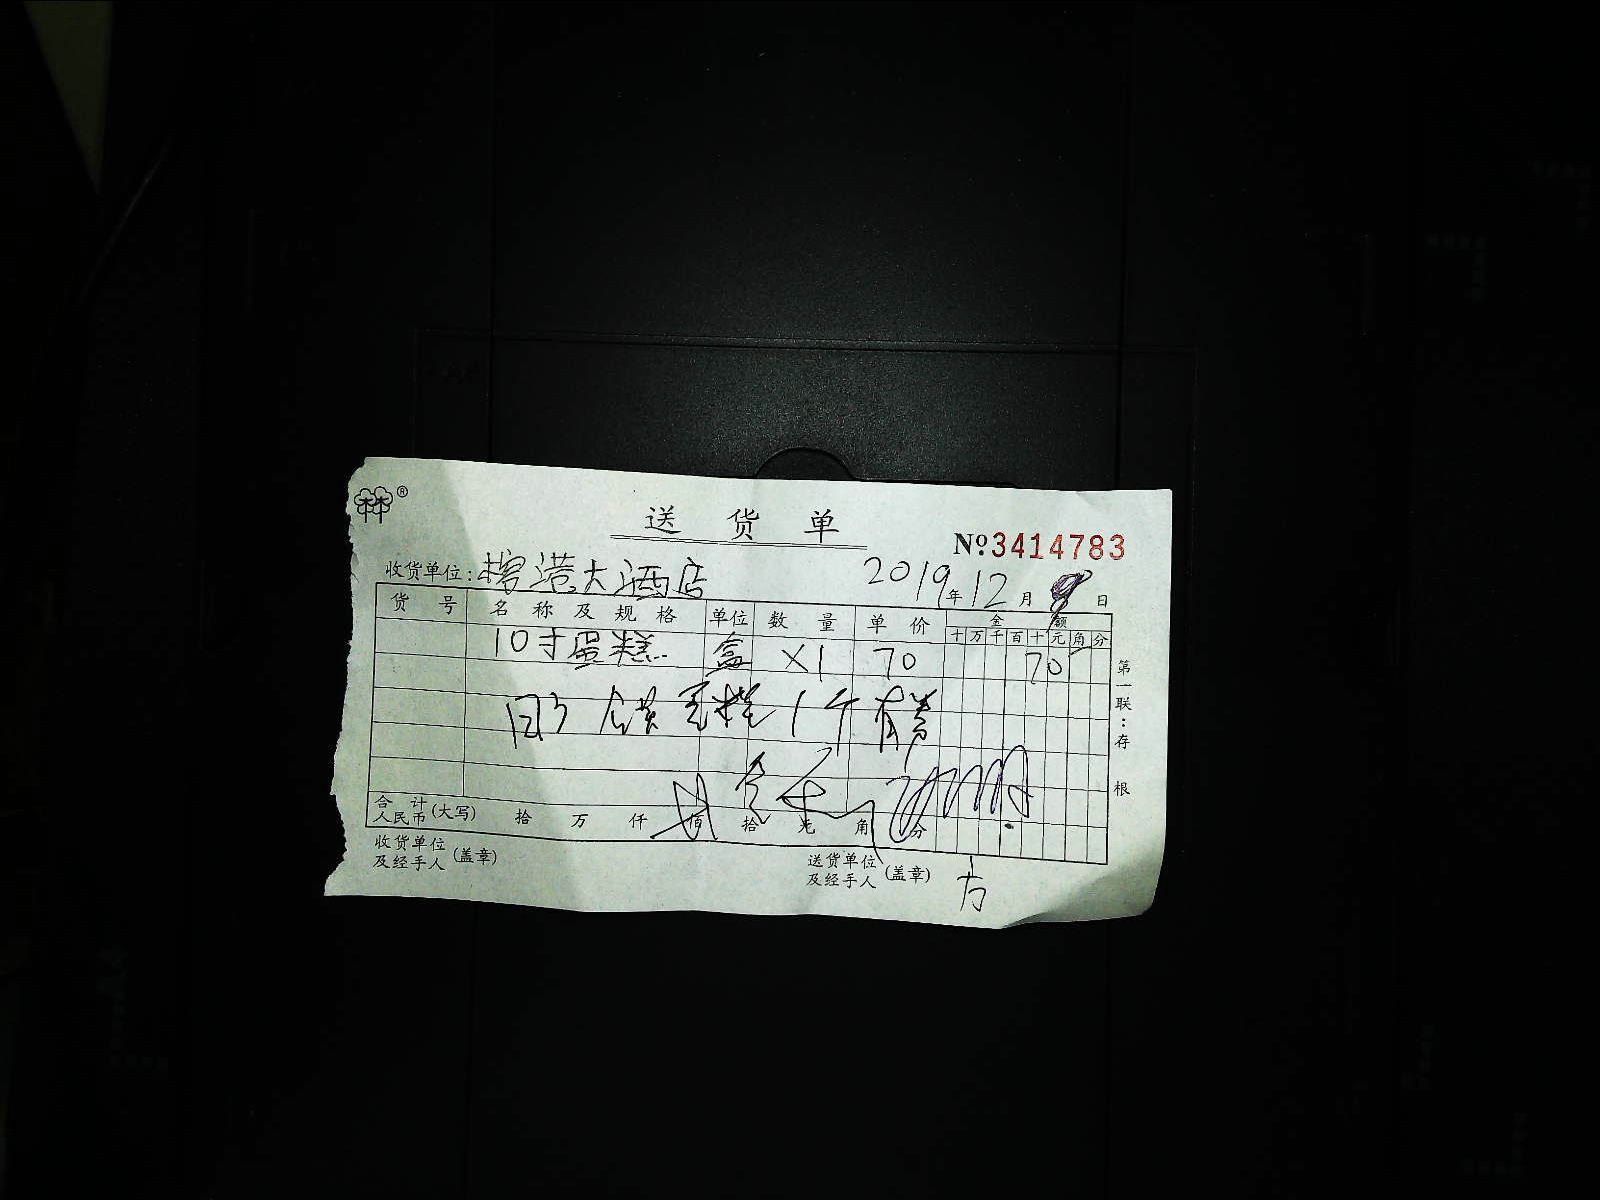 林®
送 货 单
№3414783
收货单位:榕港大酒店 2019年12月9日
货 号 名 称 及 规 格 单位 数 量 单 价 金 额
十 万 千 百 十 元 角 分
10寸蛋糕 盒 X1 70 70
蛋糕1个
合 计
人民币(大写) 拾 万 仟 佰 拾 元 角 分
收货单位
及经手人(盖章)
送货单位
及经手人(盖章) 方
第一联:存根